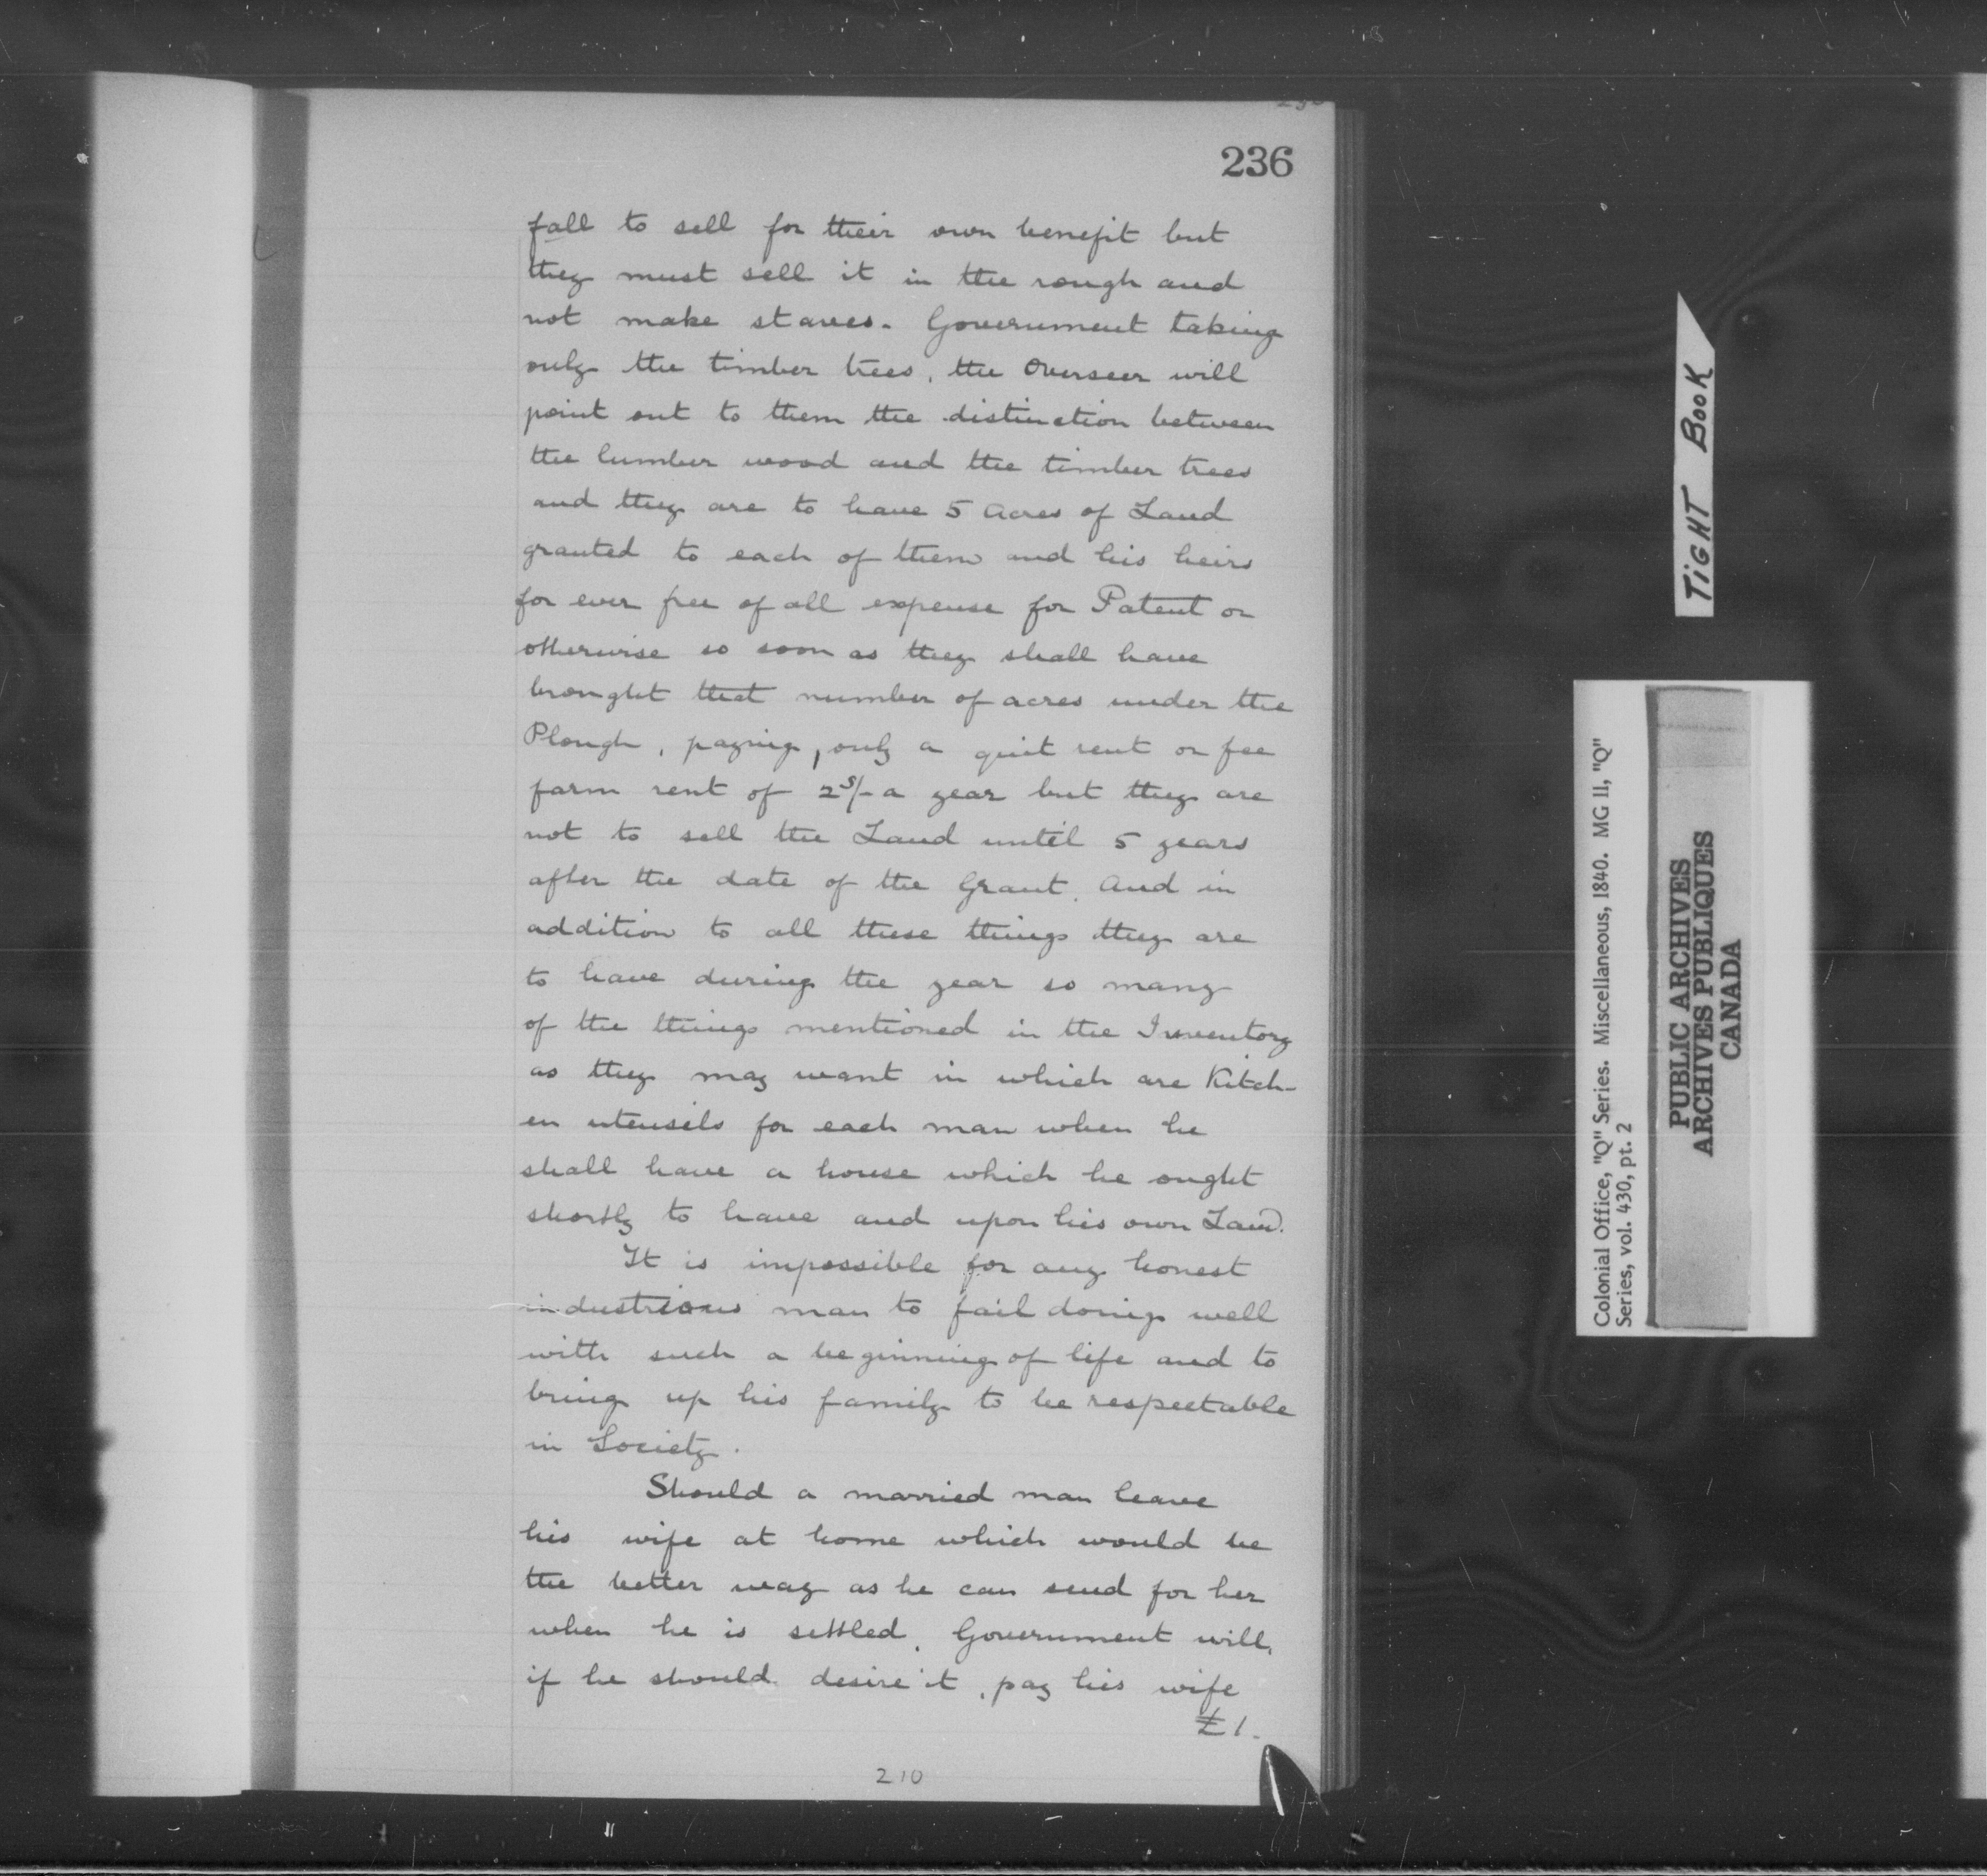 236
fall to sell for their own benefit but
they must sell it in the rough and
not make staves. Government taking
only the timber trees, the Overseer will
point out to them the distinction between
the lumber wood and the timber trees
and they are to have 5 Acres of Land
granted to each of them and his heirs
for ever free of all expense for Patent or
otherwise so soon as they shall have
brought that number of acres under the
Plough, paying, only a quit rent or fee
farm rent of 2s/- a year but they are
not to sell the Land until 5 years
after the date of the Grant. And in
addition to all these things they are
to have during the year so many
of the things mentioned in the Inventory
as they may want in which are Kitch-
en utensils for each man when he
shall have a house which he ought
shortly to have and upon his own Land.
It is impossible for any honest
industrious man to fail doing well
with such a beginning of life and to
bring up his family to be respectable
in Society.
Should a married man leave
his wife at home which would be
the better way as he can send for her
when he is settled, Government will,
if he should desire it, pay his wife
£1.
210
TIGHT BOOK
Colonial Office, "Q" Series. Miscellaneous, 1840. MG II, "Q"
Series, vol. 430, pt. 2
PUBLIC ARCHIVES
ARCHIVES PUBLIQUES
CANADA